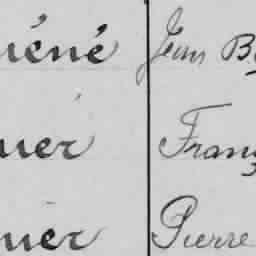 éné Jean B
uer Fran
uer Pierre